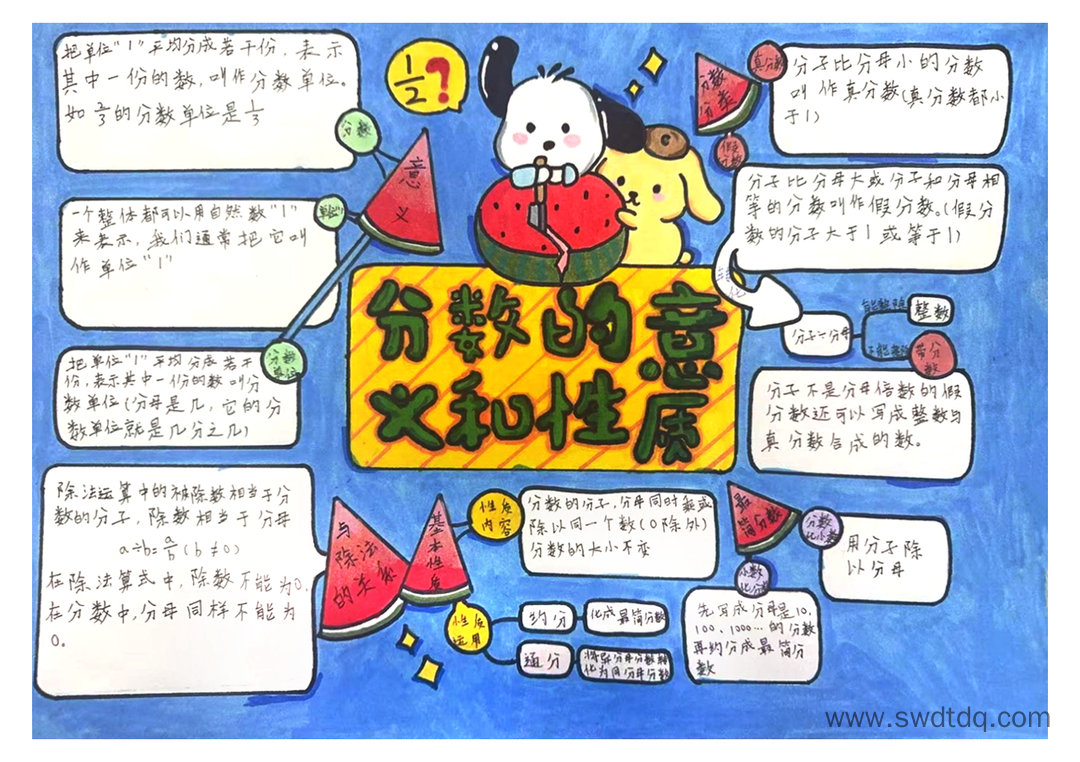 把单位"1"平均分成若干份，表示
其中一份的数，叫作分数单位。
如2/3的分数单位是1/3
分数
一个整体都可以用自然数"1"
来表示，我们通常把它叫
作单位"1"
单位"1"
把单位"1"平均分成若干
份，表示其中一份的数叫分
数单位(分母是几，它的分
数单位就是几分之几)
分数
单位
意
义
1/2?
分数的意
义和性质
分数
分类
真分数
分子比分母小的分数
叫作真分数(真分数都小
于1)
假
分数
分子比分母大或分子和分母相
等的分数叫作假分数。(假分
数的分子大于1或等于1)
转
化
分子÷分母
能整除
整数
不能整除
带分
数
分子不是分母倍数的假
分数还可以写成整数与
真分数合成的数。
除法运算中的被除数相当于分
数的分子，除数相当于分母
a÷b=a/b(b≠0)
在除法算式中，除数不能为0.
在分数中，分母同样不能为
0。
与
除法
的关系
基
本
性
质
性质
内容
分数的分子，分母同时乘或
除以同一个数(0除外)
分数的大小不变
性质
运用
约分
化成最简分数
通分
将异分母分数转
化为同分母分数
最
简分数
分数
化小数
用分子除
以分母
小数
化分数
先写成分母是10,
100、1000…的分数
再约分成最简分
数
www.swdtdq.com